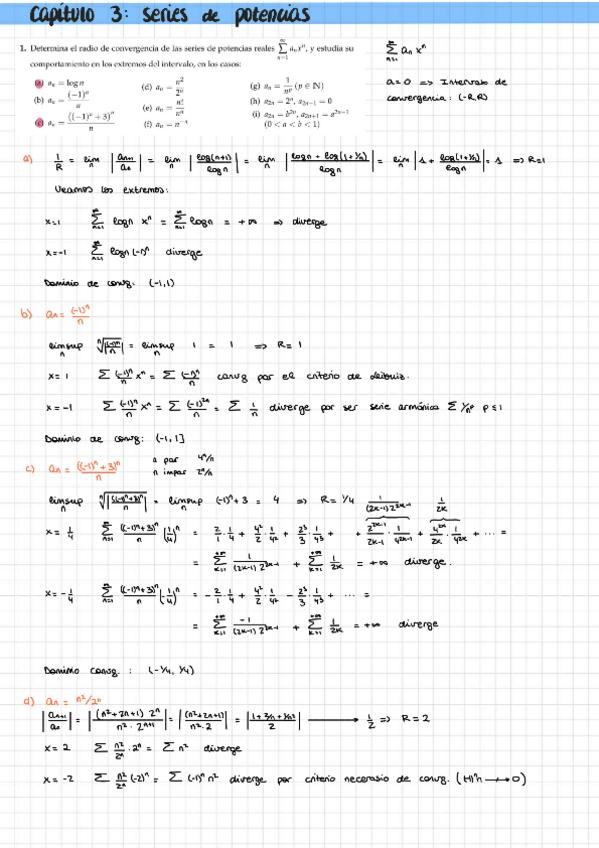 Capítulo 3: series de potencias
1. Determina el radio de convergencia de las series de potencias reales ∑_{n=1}^{∞} a_n x^n, y estudia su
comportamiento en los extremos del intervalo, en los casos:
(a) a_n = log n
(b) a_n = (-1)^n/n
(c) a_n = ((-1)^n + 3)^n/n
(d) a_n = n^2/2^n
(e) a_n = n!/n^n
(f) a_n = n^{-n}
(g) a_n = 1/n^p (p ∈ N)
(h) a_{2n} = 2^n, a_{2n-1} = 0
(i) a_{2n} = b^{2n}, a_{2n+1} = a^{2n-1}
(0 < a < b < 1)
∑_{n=1}^{∞} a_n x^n
a=0 => Intervalo de
convergencia: (-R,R)
a) 1/R = lim |a_{n+1}/a_n| = lim |log(n+1)/log n| = lim |log n + log(1+1/n)/log n| = lim |1 + log(1+1/n)/log n| = 1 => R=1
Veamos los extremos:
x=1 ∑_{n=1}^{∞} log n x^n = ∑_{n=1}^{∞} log n = +∞ => diverge
x=-1 ∑_{n=1}^{∞} log n (-1)^n diverge
Dominio de convg: (-1,1)
b) a_n = (-1)^n/n
limsup_n ⁿ√|(-1)^n/n| = limsup_n 1 = 1 => R=1
x=1 ∑ (-1)^n/n x^n = ∑ (-1)^n/n convg por el criterio de Leibniz.
x=-1 ∑ (-1)^n/n x^n = ∑ (-1)^{2n}/n = ∑ 1/n diverge por ser serie armónica ∑ 1/n^p p≤1
Dominio de convg: (-1,1]
c) a_n = ((-1)^n+3)^n/n n par 4^n/n
n impar 2^n/n
limsup_n ⁿ√|((-1)^n+3)^n/n| = limsup_n (-1)^n+3 = 4 => R=1/4 1/((2k-1)2^{2k-1}) 1/2k
x=1/4 ∑_{n=1}^{∞} ((-1)^n+3)^n/n (1/4)^n = 2/1·1/4 + 4^2/2·1/4^2 + 2^3/3·1/4^3 + + 2^{2k-1}/(2k-1)·1/4^{2k-1} + 4^{2k}/2k·1/4^{2k} + ··· =
= ∑_{k=1}^{+∞} 1/((2k-1)2^{2k-1}) + ∑_{k=1}^{+∞} 1/2k = +∞ diverge.
x=-1/4 ∑_{n=1}^{∞} ((-1)^n+3)^n/n (-1/4)^n = -2/1·1/4 + 4^2/2·1/4^2 - 2^3/3·1/4^3 + ··· =
= ∑_{k=1}^{+∞} -1/((2k-1)2^{2k-1}) + ∑_{k=1}^{+∞} 1/2k = +∞ diverge
Dominio convg. : (-1/4, 1/4)
d) a_n = n^2/2^n
|a_{n+1}/a_n| = |(n^2+2n+1) 2^n/n^2·2^{n+1}| = |(n^2+2n+1)/n^2·2| = |1+2/n+1/n^2/2| ⟶ 1/2 => R=2
x=2 ∑ n^2/2^n · 2^n = ∑ n^2 diverge
x=-2 ∑ n^2/2^n (-2)^n = ∑ (-1)^n n^2 diverge por criterio necesario de convg.